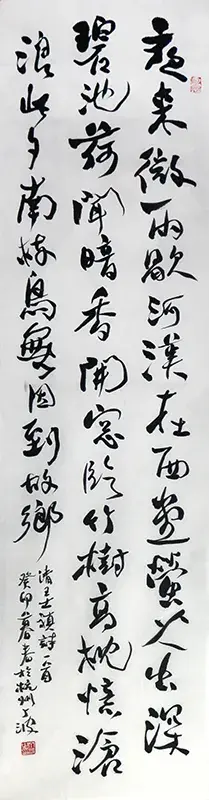 夜来微雨歇河漢在西堂螢火出深
碧池荷聞暗香開窓臨竹樹高枕憶滄
浪此夕南枝鳥無因到故鄉
清王士禛詩一首
癸卯暮春於杭州